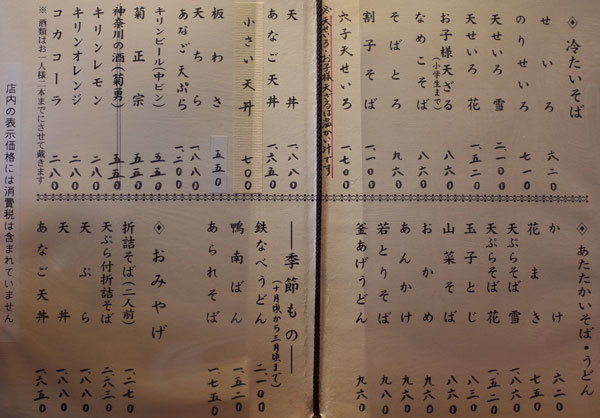 ◇ 冷たいそば
せいろ 六二〇
のりせいろ 七一〇
天せいろ 雪 二、一〇〇
天せいろ 花 一、五二〇
お子様天ざる(小学生まで) 八六〇
なめこそば 八六〇
そばとろ 九六〇
割子そば 一、一〇〇
穴子天せいろ 一、七〇〇
※天せいろ・お子様天ざるは温かい汁です
天丼 一、八八〇
あなご天丼 一、六五〇
小さい天丼 七〇〇
板わさ 五五〇
天ちら 一、八八〇
あなご天ぷら 一、二〇〇
キリンビール(中ビン) 五五〇
菊正宗 五五〇
神奈川の酒(菊勇) 五五〇
キリンレモン 二八〇
キリンオレンジ 二八〇
コカコーラ 二八〇
※ 酒類はお一人様二本までにさせて戴きます
◇ あたたかいそば・うどん
かけ 六二〇
花まき 七五〇
天ぷらそば 雪
天ぷらそば 花 一、五二〇
玉子とじ 八三〇
山菜そば
おかめ
あんかけ
若とりそば 九六〇
釜あげうどん 九六〇
季節もの
(十月頃から三月頃まで)
鉄なべうどん 二、一〇〇
鴨南ばん 一、五二〇
あられそば 一、七五〇
◇ おみやげ
折詰そば(二人前) 一、二七〇
天ぷら付折詰そば 二、六三〇
天ぷら 一、八八〇
天丼 一、八八〇
あなご天丼 一、六五〇
店内の表示価格には消費税は含まれていません